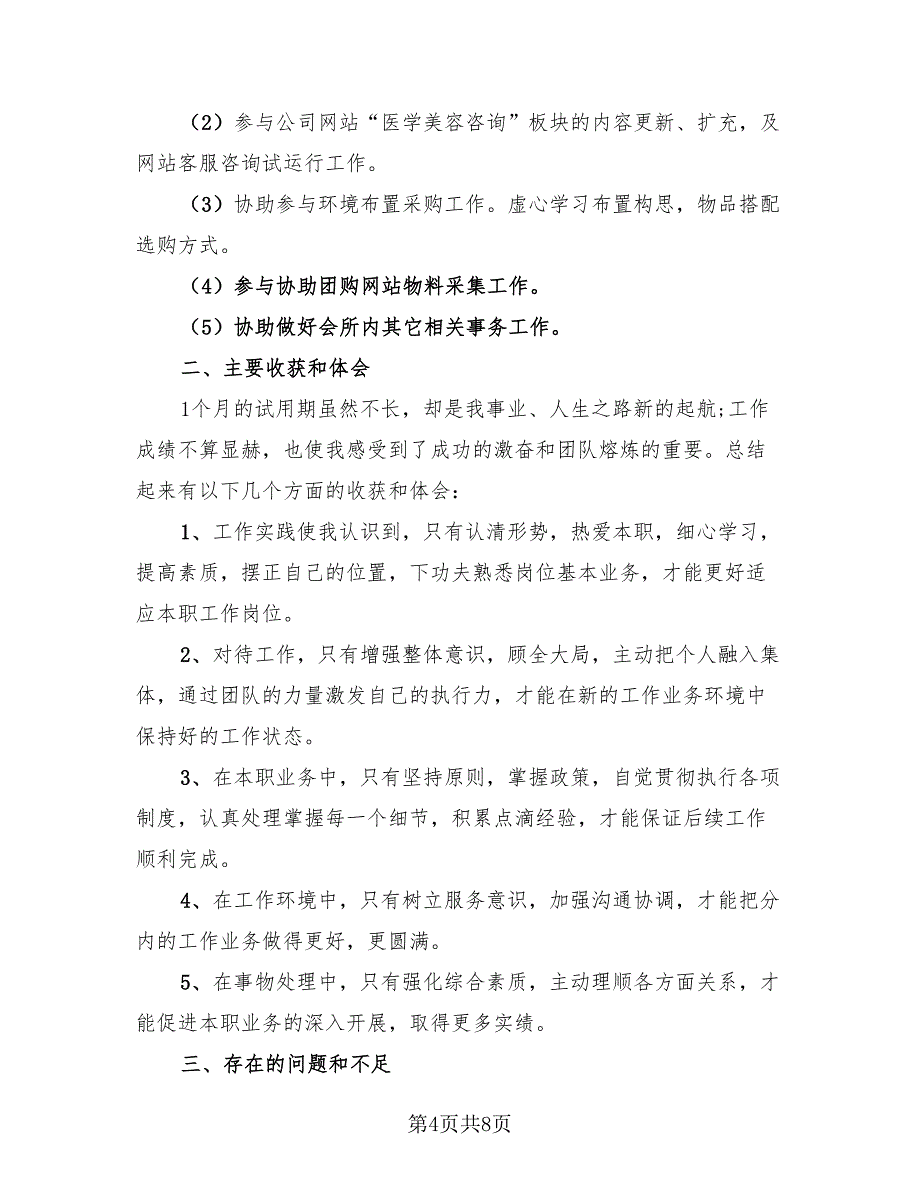 （2）参与公司网站“医学美容咨询”板块的内容更新、扩充，及
网站客服咨询试运行工作。
（3）协助参与环境布置采购工作。虚心学习布置构思，物品搭配
选购方式。
（4）参与协助团购网站物料采集工作。
（5）协助做好会所内其它相关事务工作。
二、主要收获和体会
1个月的试用期虽然不长，却是我事业、人生之路新的起航;工作
成绩不算显赫，也使我感受到了成功的激奋和团队熔炼的重要。总结
起来有以下几个方面的收获和体会：
1、工作实践使我认识到，只有认清形势，热爱本职，细心学习，
提高素质，摆正自己的位置，下功夫熟悉岗位基本业务，才能更好适
应本职工作岗位。
2、对待工作，只有增强整体意识，顾全大局，主动把个人融入集
体，通过团队的力量激发自己的执行力，才能在新的工作业务环境中
保持好的工作状态。
3、在本职业务中，只有坚持原则，掌握政策，自觉贯彻执行各项
制度，认真处理掌握每一个细节，积累点滴经验，才能保证后续工作
顺利完成。
4、在工作环境中，只有树立服务意识，加强沟通协调，才能把分
内的工作业务做得更好，更圆满。
5、在事物处理中，只有强化综合素质，主动理顺各方面关系，才
能促进本职业务的深入开展，取得更多实绩。
三、存在的问题和不足
第4页共8页